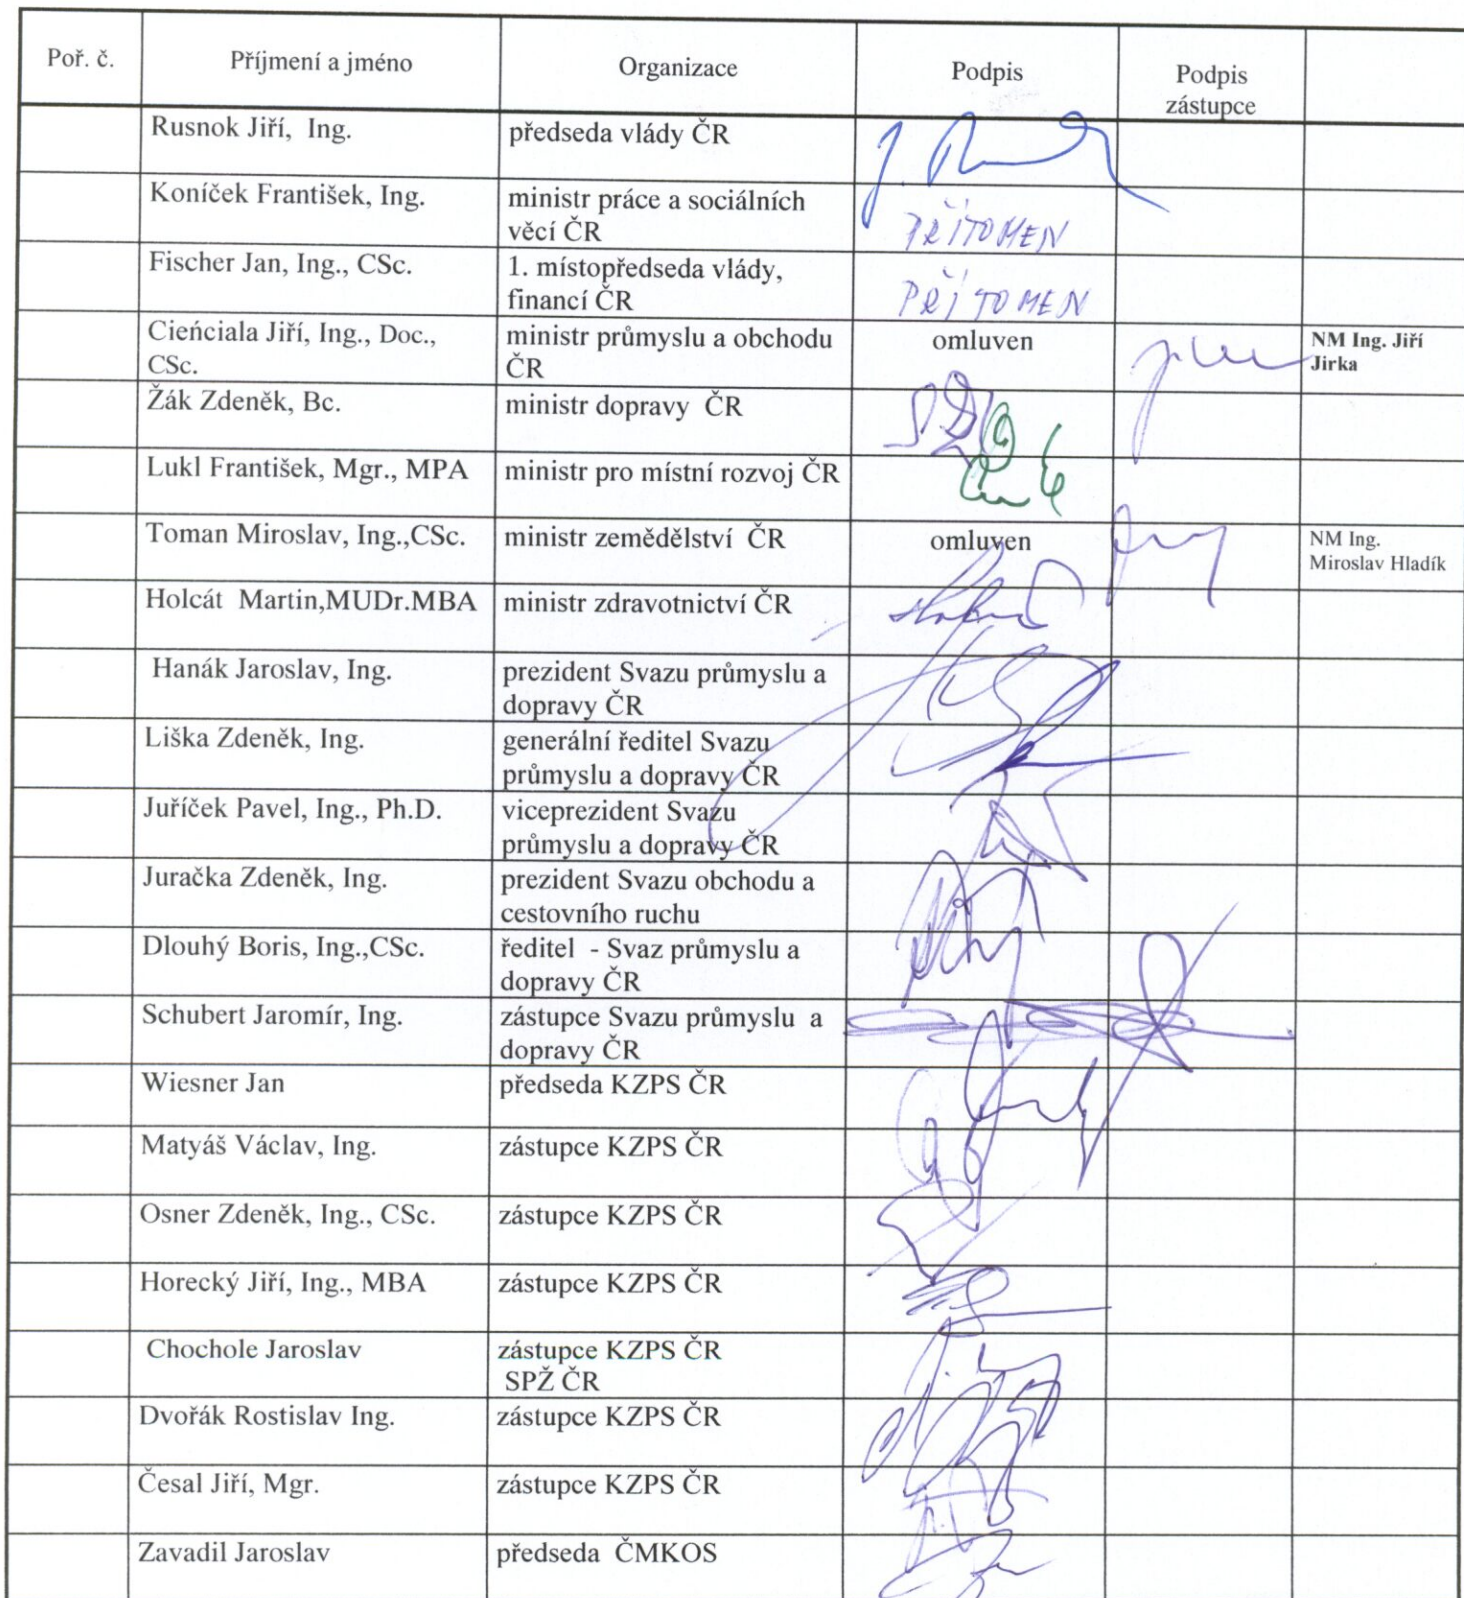 Poř. č. Příjmení a jméno Organizace Podpis Podpis
zástupce
Rusnok Jiří, Ing. předseda vlády ČR
Koníček František, Ing. ministr práce a sociálních
věcí ČR PŘÍTOMEN
Fischer Jan, Ing., CSc. 1. místopředseda vlády,
financí ČR PŘÍTOMEN
Cieńciala Jiří, Ing., Doc., ministr průmyslu a obchodu omluven NM Ing. Jiří
CSc. ČR Jirka
Žák Zdeněk, Bc. ministr dopravy ČR
Lukl František, Mgr., MPA ministr pro místní rozvoj ČR
Toman Miroslav, Ing.,CSc. ministr zemědělství ČR omluven NM Ing.
Miroslav Hladík
Holcát Martin,MUDr.MBA ministr zdravotnictví ČR
Hanák Jaroslav, Ing. prezident Svazu průmyslu a
dopravy ČR
Liška Zdeněk, Ing. generální ředitel Svazu
průmyslu a dopravy ČR
Juříček Pavel, Ing., Ph.D. viceprezident Svazu
průmyslu a dopravy ČR
Juračka Zdeněk, Ing. prezident Svazu obchodu a
cestovního ruchu
Dlouhý Boris, Ing.,CSc. ředitel - Svaz průmyslu a
dopravy ČR
Schubert Jaromír, Ing. zástupce Svazu průmyslu a
dopravy ČR
Wiesner Jan předseda KZPS ČR
Matyáš Václav, Ing. zástupce KZPS ČR
Osner Zdeněk, Ing., CSc. zástupce KZPS ČR
Horecký Jiří, Ing., MBA zástupce KZPS ČR
Chochole Jaroslav zástupce KZPS ČR
SPŽ ČR
Dvořák Rostislav Ing. zástupce KZPS ČR
Česal Jiří, Mgr. zástupce KZPS ČR
Zavadil Jaroslav předseda ČMKOS